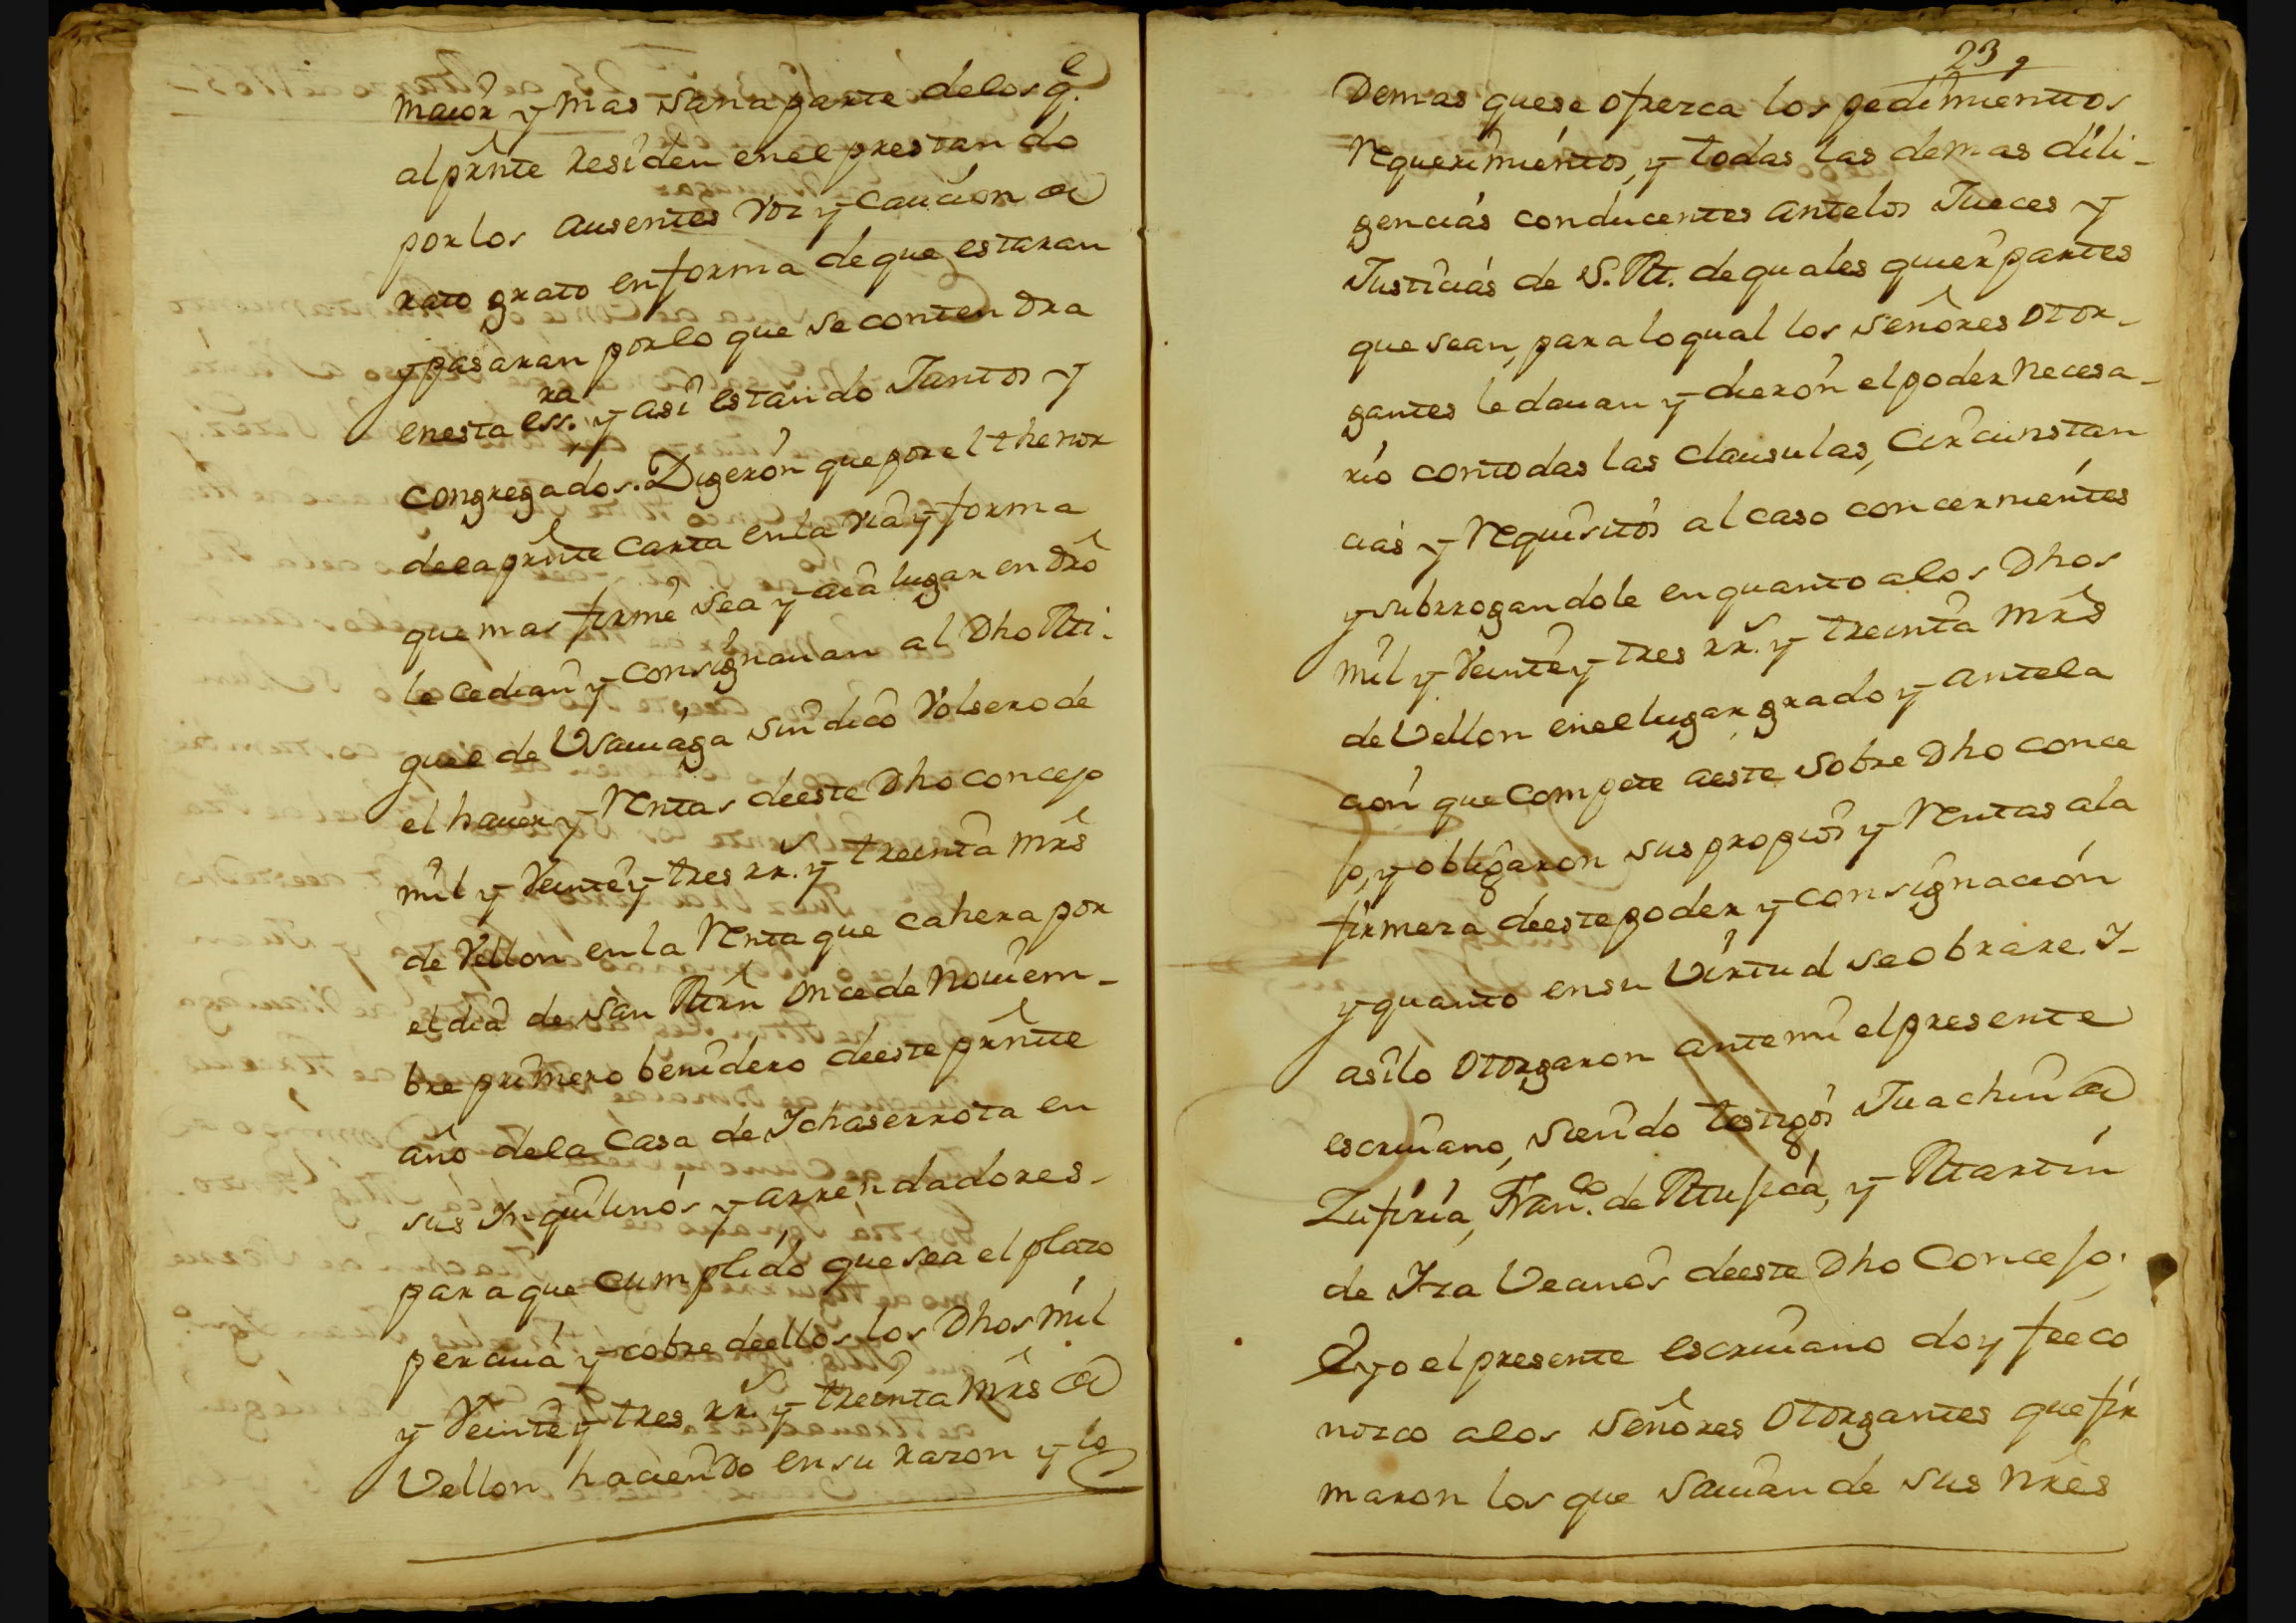 maior y mas sana parte delos q.e
al prnte residen enel prestando
por los ausentes voz y caución de
rato grato en forma de que estaran
y pasaran por lo que se contendra
en esta ess.ra y asi estando Juntos y
congregados. Digerón que por el thenor
dela prnte Carta en la via y forma
que mas firme sea y aia lugar en dro
le cedian y consignauan al Dho Mi-
guel de Vsauiaga sindico Volsero de
el hauer y Rentas deeste Dho concejo
mil y Veinte y tres rr.s y treinta mrs
de Vellon en la Renta que cahera por
el dia de san Mrn once de Nouiem-
bre primero benidero deeste prnte
año dela Casa de Ichaserrota en
sus Inquilinos y arrendadores-
para que cumplido que sea el plazo
perciua y cobre deellos los Dhos mil
y Veinte y tres rr.s y treinta mrs de
Vellon haciendo en su razon y lo
23,
Demas quese ofrezca los pedimientos
Requerimientos, y todas las demas dili-
gencias conducentes antelos Jueces y
Justicias de S. M. de quales quier partes
que sean, para lo qual los señores otor-
gantes le dauan y dieron el poder Necesa-
rio con todas las clausulas, Circunstan
cias y Requisitos al caso concernientes
y subrrogandole en quanto a los Dhos
mil y Veinte y tres rr.s y treinta mrs
de Vellon en el lugar, grado y antela
cion que Compete aeste sobre Dho conce
jo, y obligaron sus propios y Rentas ala
firmeza deeste poder y consignación
y quanto en su Virtud se obrare. Y-
asilo otorgaron ante mi el presente
escriuano, siendo testigos Juachin de
Zufiria, Fran.co de Mujica, y Martin
de Iza Vecinos deeste Dho Concejo;
E yo el presente escriuano doy fee co
nozco a los señores otorgantes que fir
maron los que sauian de sus nres